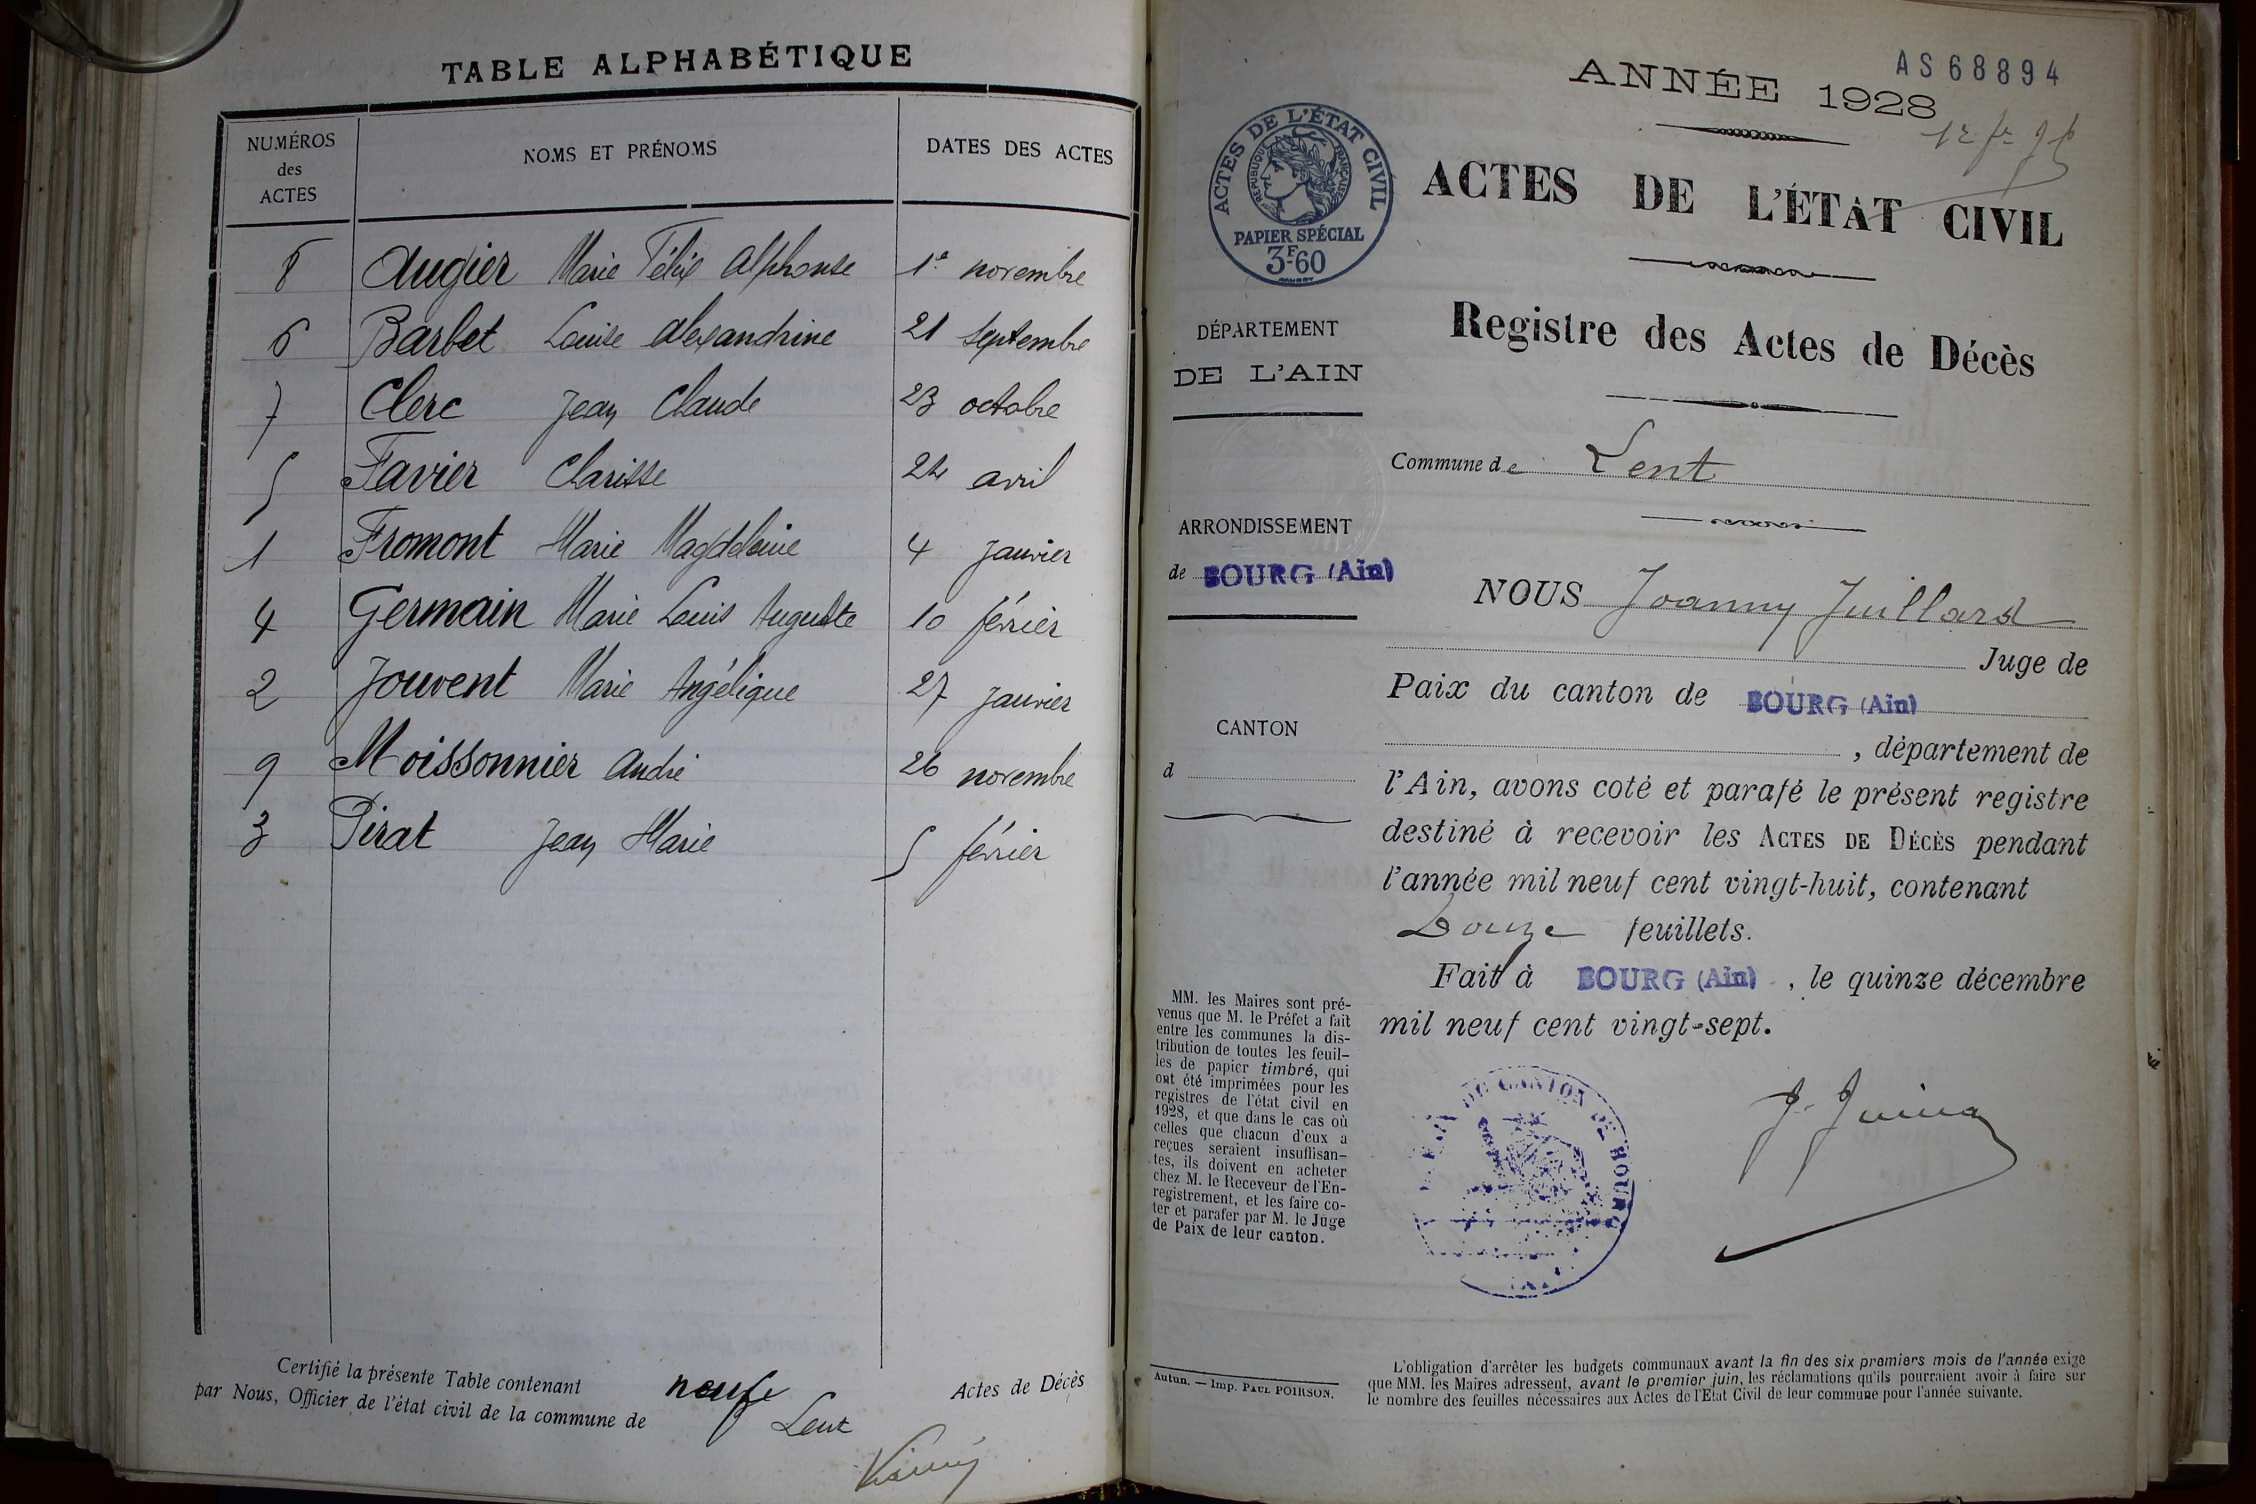 TABLE ALPHABÉTIQUE
NUMÉROS
des
ACTES
NOMS ET PRÉNOMS
DATES DES ACTES
8 Augier Marie Félix Alphonse 1er novembre
6 Barbet Louise Alexandrine 21 septembre
7 Clerc Jean Claude 23 octobre
5 Favier Clarisse 24 avril
1 Fromont Marie Magdeleine 4 janvier
4 Germain Marie Louis Auguste 10 février
2 Jouvent Marie Angélique 27 janvier
9 Moissonnier André 26 novembre
3 Pirat Jean Marie 5 février
Certifié la présente Table contenant neuf Actes de Décès
par Nous, Officier de l'état civil de la commune de Lent
AS68894
ANNÉE 1928
ACTES DE L'ÉTAT CIVIL
RÉPUBLIQUE FRANÇAISE
PAPIER SPÉCIAL
3F.60
ACTES DE L'ÉTAT CIVIL
Registre des Actes de Décès
DÉPARTEMENT
DE L'AIN
Commune de Lent
ARRONDISSEMENT
de BOURG (Ain)
CANTON
d
NOUS Joanny Juillard
Juge de
Paix du canton de BOURG (Ain)
, département de
l'Ain, avons coté et parafé le présent registre
destiné à recevoir les ACTES DE DÉCÈS pendant
l'année mil neuf cent vingt-huit, contenant
Douze feuillets.
Fait à BOURG (Ain) , le quinze décembre
mil neuf cent vingt-sept.
MM. les Maires sont pré-
venus que M. le Préfet a fait
entre les communes la dis-
tribution de toutes les feuil-
les de papier timbré, qui
ont été imprimées pour les
registres de l'état civil en
1928, et que dans le cas où
celles que chacun d'eux a
reçues seraient insuffisan-
tes, ils doivent en acheter
chez M. le Receveur de l'En-
registrement, et les faire co-
ter et parafer par M. le Juge
de Paix de leur canton.
DE CANTON DE BOURG
Autun. — Imp. PAUL POIRSON.
L'obligation d'arrêter les budgets communaux avant la fin des six premiers mois de l'année exige
que MM. les Maires adressent, avant le premier juin, les réclamations qu'ils pourraient avoir à faire sur
le nombre des feuilles nécessaires aux Actes de l'Etat Civil de leur commune pour l'année suivante.